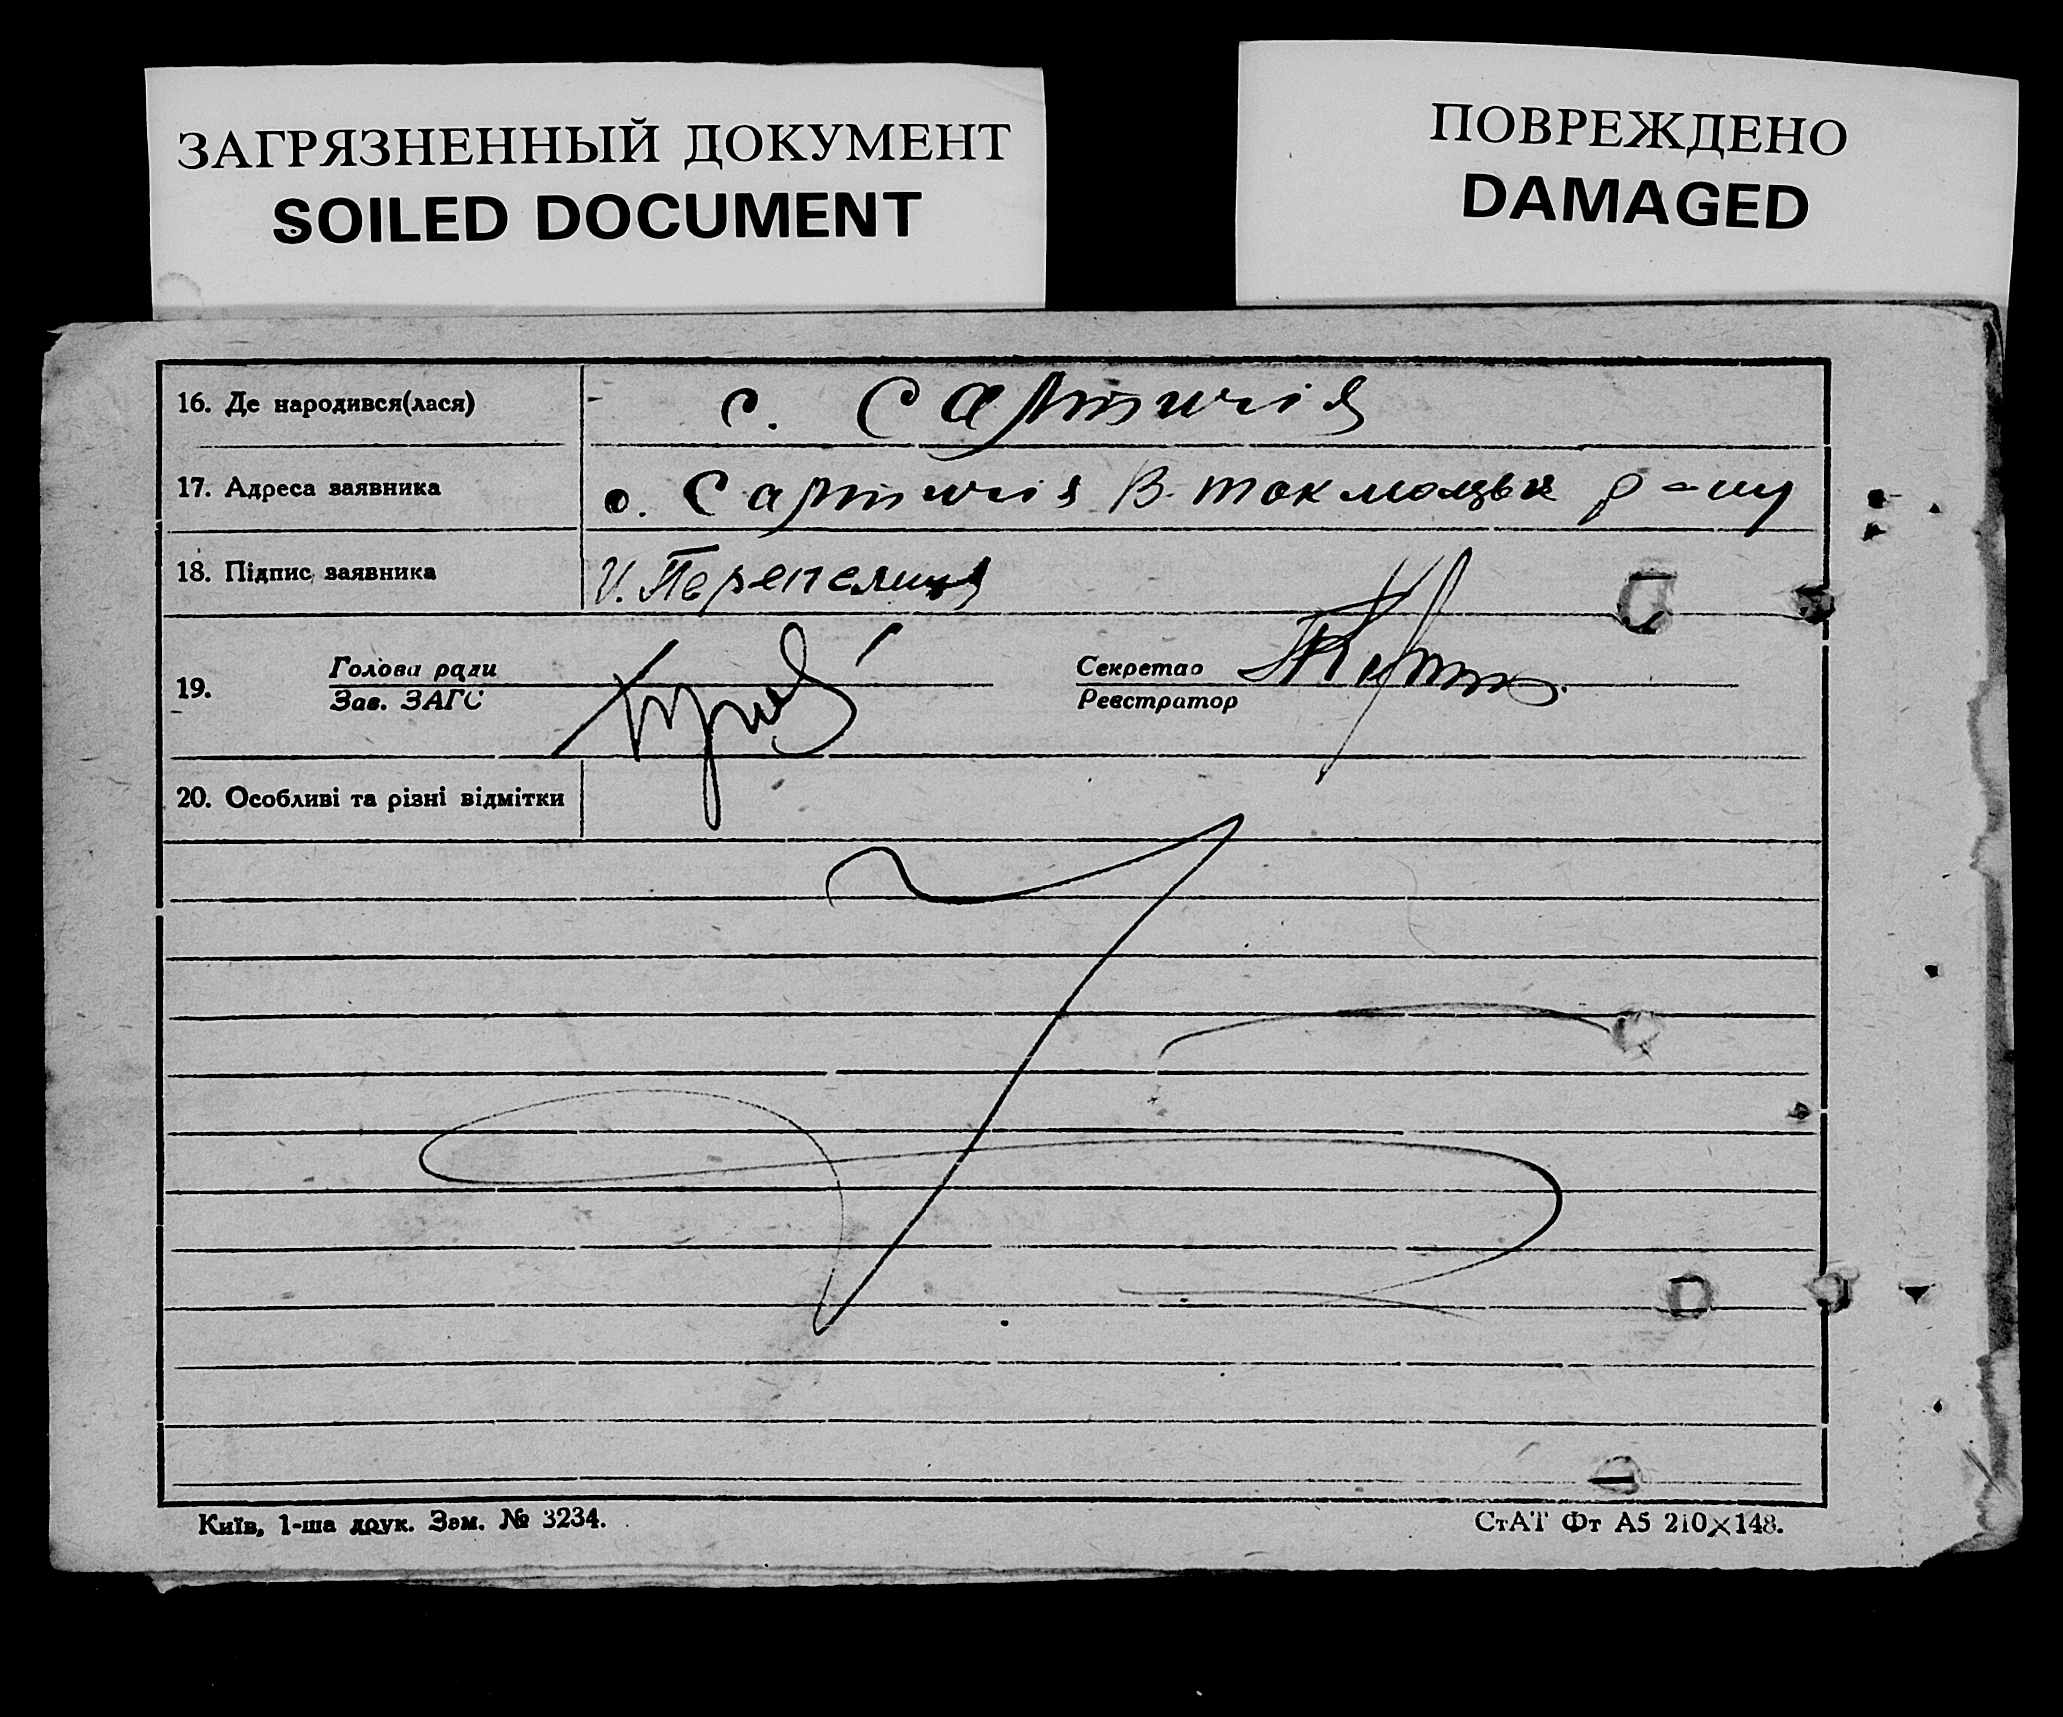 ЗАГРЯЗНЕННЫЙ ДОКУМЕНТ
SOILED DOCUMENT
ПОВРЕЖДЕНО
DAMAGED
16. Де народився(лася) с. Сартигія
17. Адреса заявника с. Сартигія В. Токмацьк р-ну
18. Підпис заявника И. Перепелиця
19. Голова ради
Зав. ЗАГС
Секретар
Реєстратор
20. Особливі та різні відмітки
Київ, 1-ша друк. Зам. № 3234.
СтАТ Фт А5 210×148.